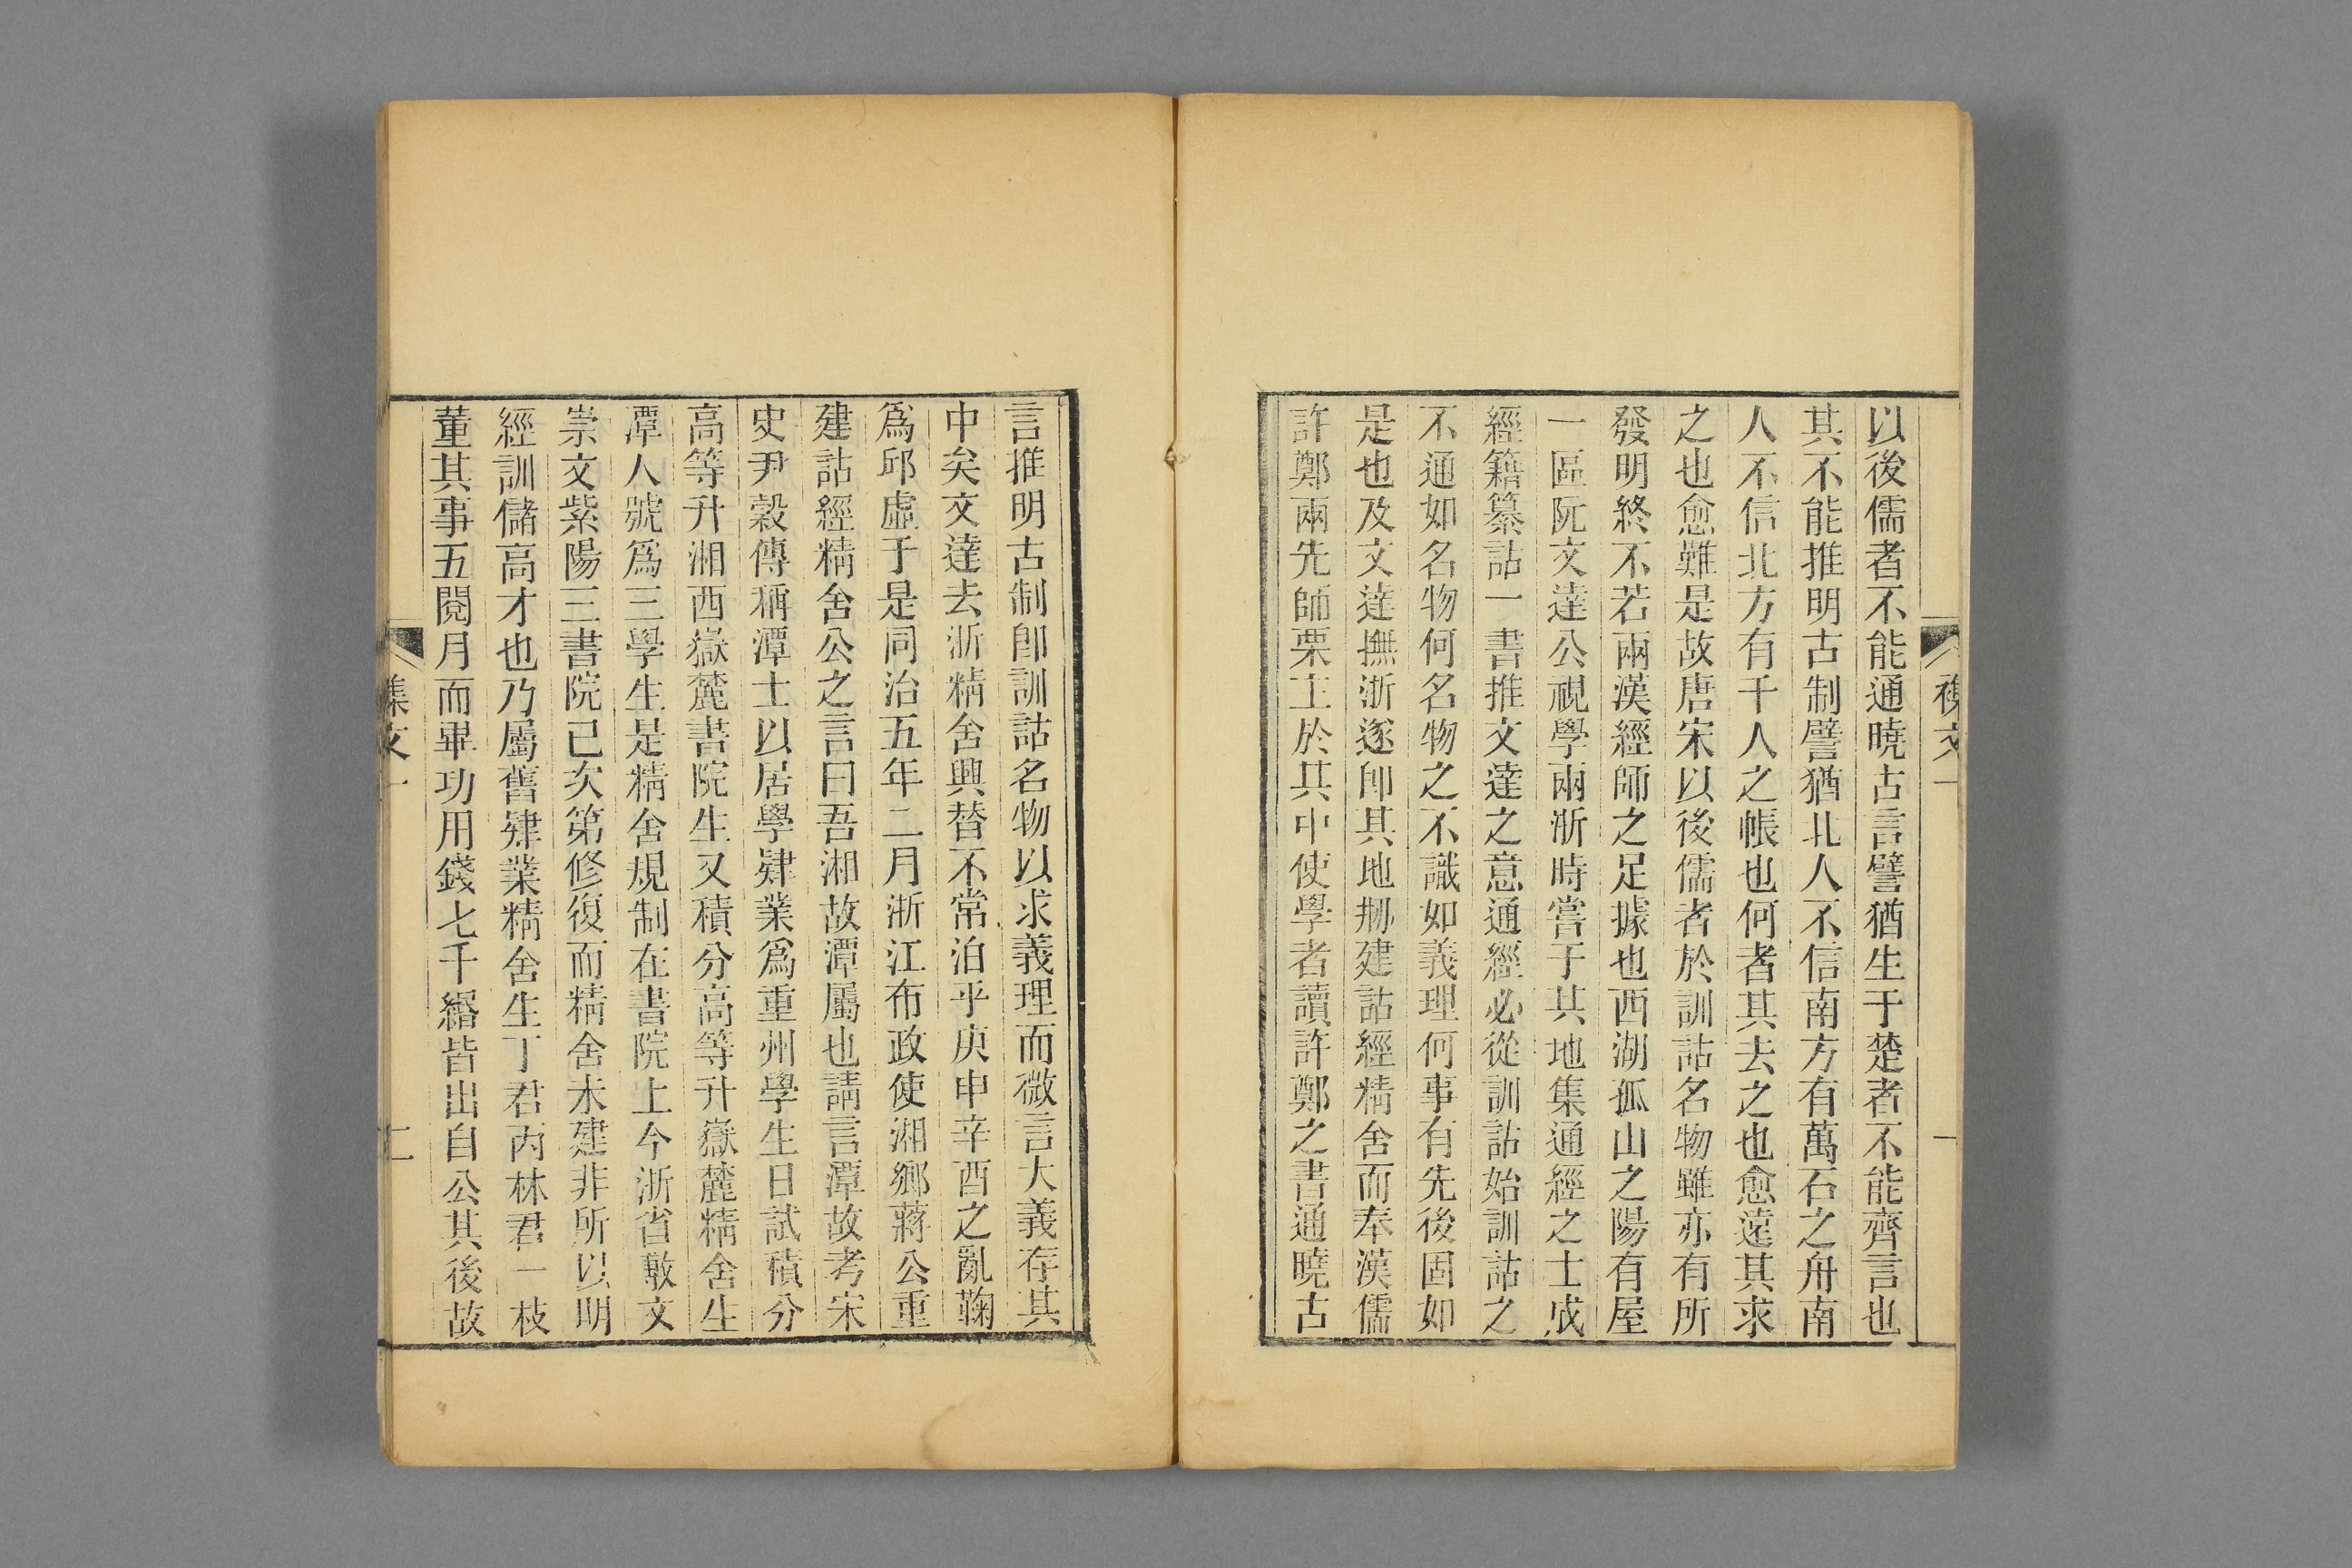 以後儒者不能通曉古言譬猶生于楚者不能齊言也
其不能推明古制譬猶北人不信南方有萬石之舟南
人不信北方有千人之帳也何者其去之也愈遠其求
之也愈難是故唐宋以後儒者於訓詁名物雖亦有所
發明終不若兩漢經師之足據也西湖孤山之陽有屋
一區阮文達公視學兩浙時嘗于其地集通經之士成
經籍纂詁一書推文達之意通經必從訓詁始訓詁之
不通如名物何名物之不識如義理何事有先後固如
是也及文達撫浙遂卽其地刱建詁經精舍而奉漢儒
許鄭兩先師栗主於其中使學者讀許鄭之書通曉古
言推明古制卽訓詁名物以求義理而微言大義存其
中矣文達去浙精舍興替不常洎乎庚申辛酉之亂鞠
爲邱虛于是同治五年二月浙江布政使湘鄉蔣公重
建詁經精舍公之言曰吾湘故潭屬也請言潭故考宋
史尹穀傳稱潭士以居學肄業爲重州學生日試積分
高等升湘西嶽麓書院生又積分高等升嶽麓精舍生
潭人號爲三學生是精舍規制在書院上今浙省敷文
崇文紫陽三書院已次第修復而精舍未建非所以明
經訓儲高才也乃屬舊肄業精舍生丁君丙林君一枝
董其事五閱月而畢功用錢七千緡皆出自公其後故
集文一
二